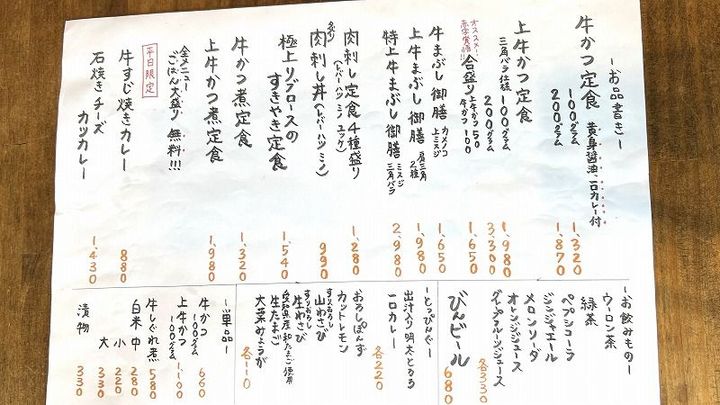 〜お品書き〜
牛かつ定食 黄身醤油、一口カレー付
100グラム 1,320
200グラム 1,870
上牛かつ定食
三角バラ仕様 100グラム 1,980
200グラム 3,300
オススメ!
合盛り 上牛かつ50 牛かつ100 1,650
牛まぶし御膳 カメノコ 1,650
上牛まぶし御膳 肩三角 上ミスジ 2種 1,980
特上牛まぶし御膳 ミスジ 三角バラ 2,980
肉刺し定食 4種盛り
(レバー ハツ ミノ ユッケ) 1,280
肉刺し丼 (レバー ハツ ミノ) 990
極上リブロースの
すきやき定食 1,540
牛かつ煮定食 1,320
上牛かつ煮定食 1,980
全メニュー
ごはん大盛り 無料!!!
平日限定
牛すじ焼きカレー 880
石焼きチーズ
カツカレー 1,430
〜お飲みもの〜
ウーロン茶
緑茶
ペプシコーラ
ジンジャエール
メロンソーダ
オレンジジュース
グレープフルーツジュース
各330
びんビール 680
〜とっぴんぐ〜
一口カレー
出汁入り明太とろろ
各220
カットレモン
おろしぽんず
すりおろし
山わさび
すりおろし
生わさび
生たまご
大葉みょうが
各110
〜単品〜
牛かつ 100グラム 660
上牛かつ 100グラム 1,100
牛しぐれ煮 580
白米 中 280
小 220
大 330
漬物 330